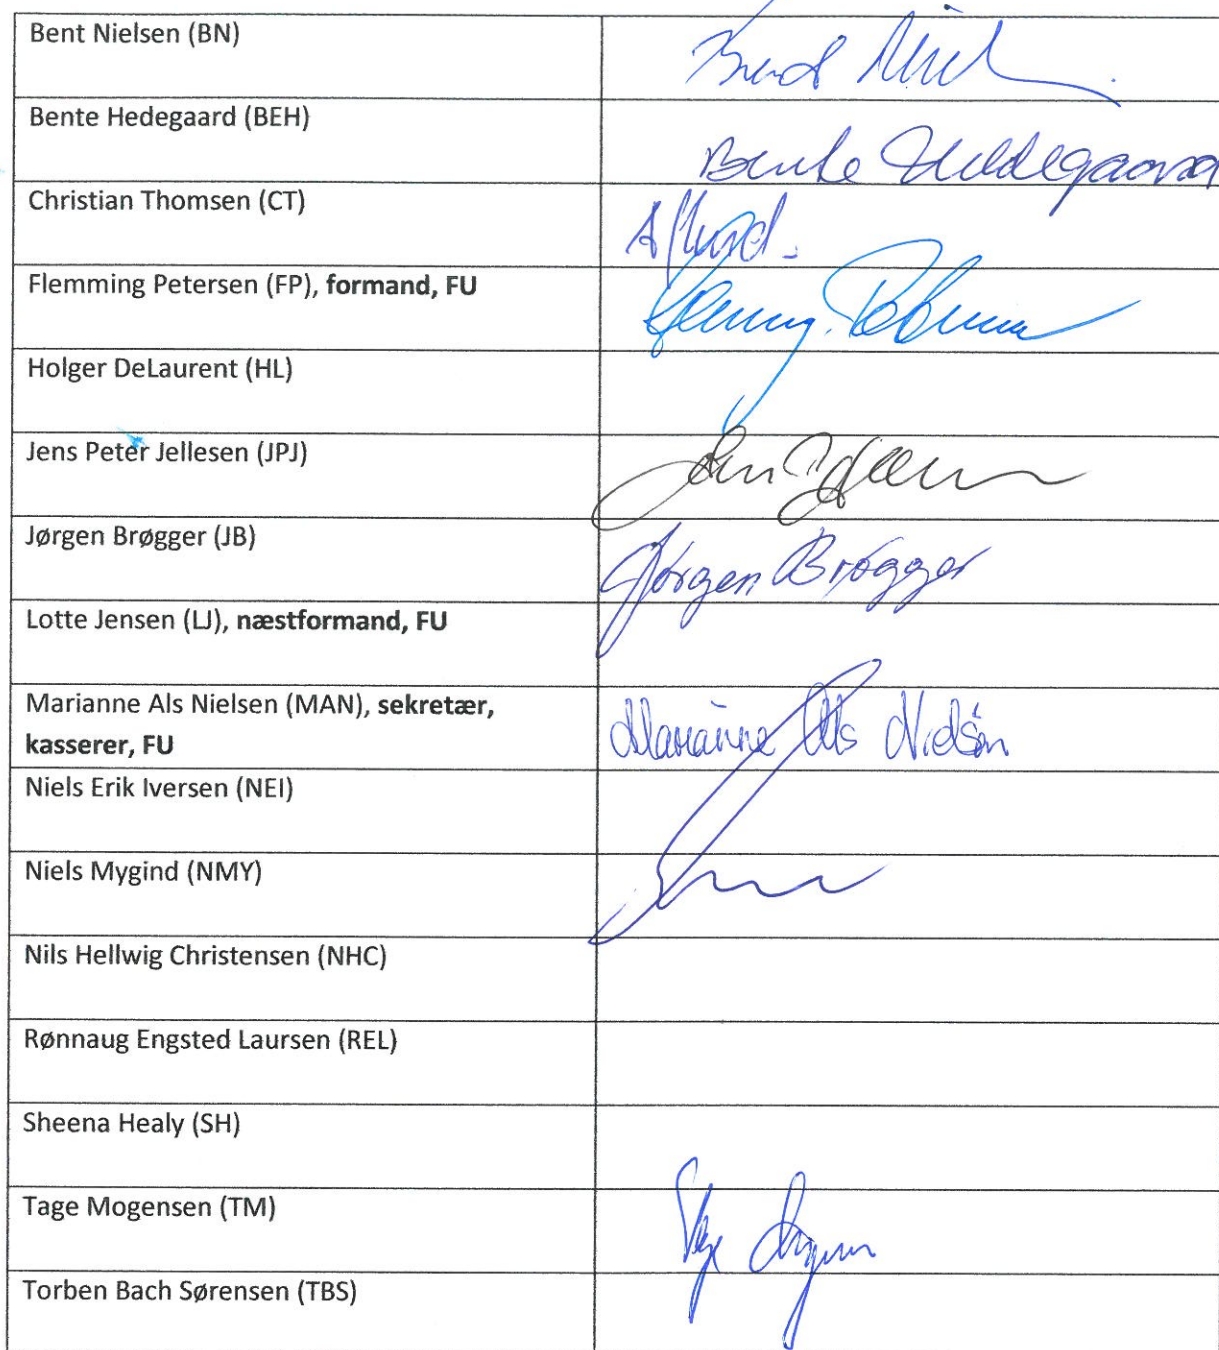 Bent Nielsen (BN)
Bente Hedegaard (BEH)
Bente Hedegaard
Christian Thomsen (CT)
Afbud.
Flemming Petersen (FP), formand, FU
Holger DeLaurent (HL)
Jens Peter Jellesen (JPJ)
Jørgen Brøgger (JB)
Jørgen Brøgger
Lotte Jensen (LJ), næstformand, FU
Marianne Als Nielsen (MAN), sekretær,
kasserer, FU
Marianne Als Nielsen
Niels Erik Iversen (NEI)
Niels Mygind (NMY)
Nils Hellwig Christensen (NHC)
Rønnaug Engsted Laursen (REL)
Sheena Healy (SH)
Tage Mogensen (TM)
Torben Bach Sørensen (TBS)